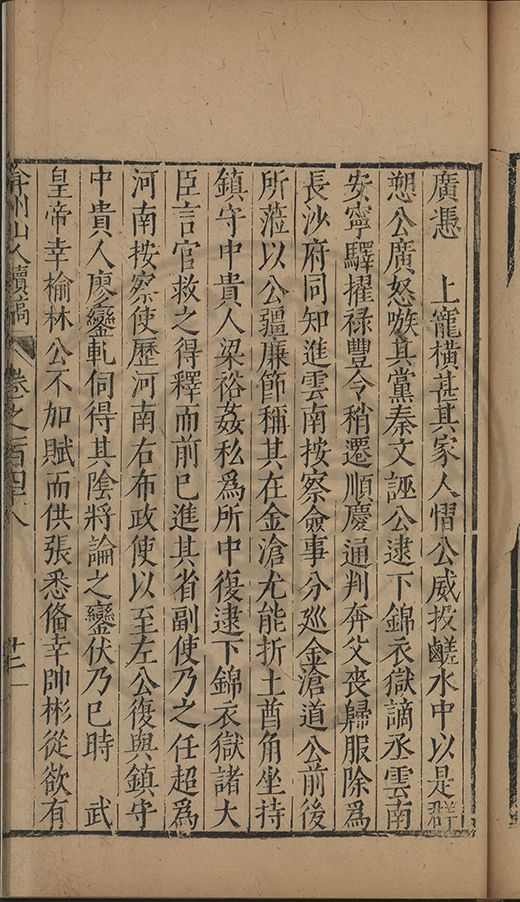 廣憑　上寵橫甚其家人慴公威投鹺水中以是羣
愬公廣怒嗾其黨秦文誣公逮下錦衣獄謫丞雲南
安寧驛擢祿豐令稍遷順慶通判奔父喪歸服除爲
長沙府同知進雲南按察僉事分巡金滄道公前後
所蒞以公彊廉節稱其在金滄尤能折土酋角坐持
鎮守中貴人梁裕姦私爲所中復逮下錦衣獄諸大
臣言官救之得釋而前已進其省副使乃之任超爲
河南按察使歷河南右布政使以至左公復與鎮守
中貴人廖鑾軋伺得其陰將論之鑾伏乃已時　武
皇帝幸榆林公不加賦而供張悉俻幸帥彬從欲有
弇州山人續稿　卷之一百四十八　廿二